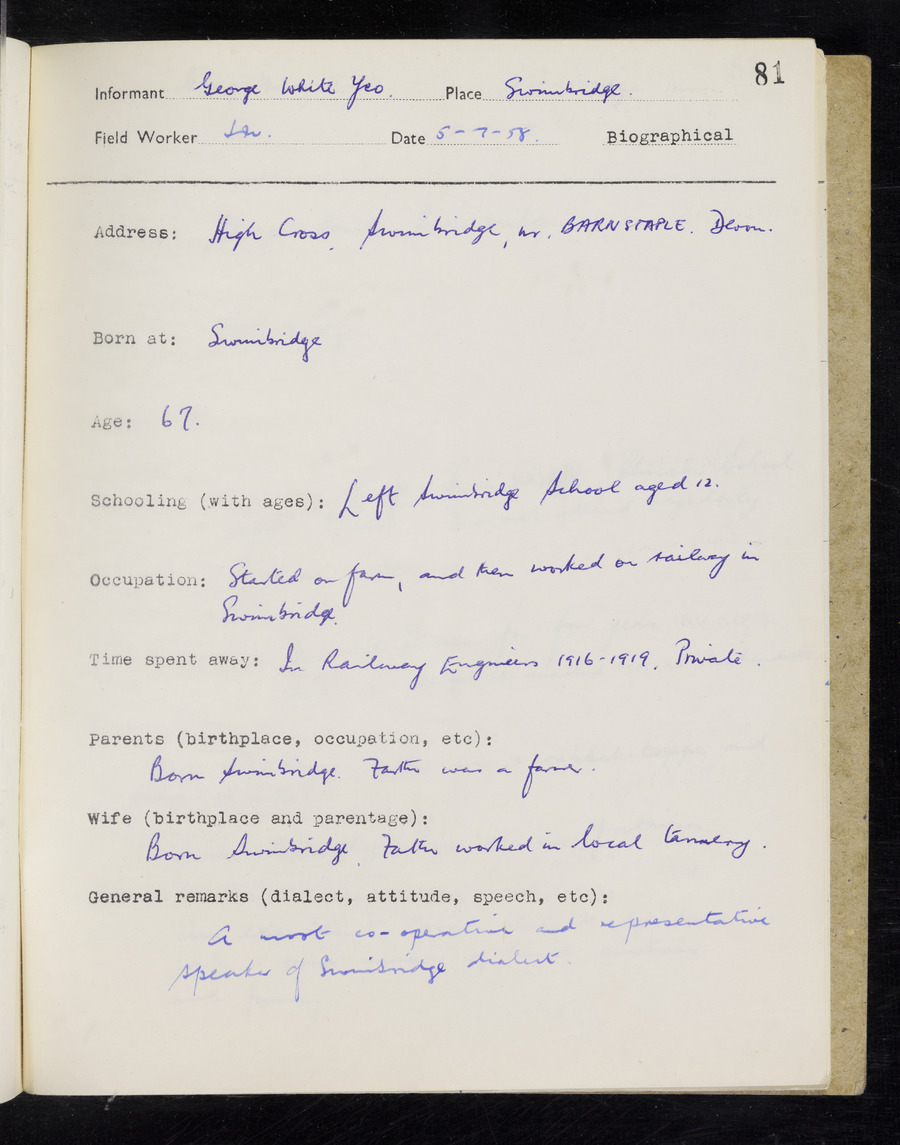 81
Informant George White Yeo. Place Swimbridge.
Field Worker Date 5-7-58. Biographical
Address: High Cross, Swimbridge, nr. BARNSTAPLE. Devon.
Born at: Swimbridge
Age: 67.
Schooling (with ages): Left Swimbridge School aged 12.
Occupation: Started on farm, and then worked on railway in
Swimbridge.
Time spent away: In Railway Engineers 1916-1919. Private.
Parents (birthplace, occupation, etc):
Born Swimbridge. Father was a farmer.
Wife (birthplace and parentage):
Born Swimbridge. Father worked in local tannery.
General remarks (dialect, attitude, speech, etc):
A most co-operative and representative
speaker of Swimbridge dialect.